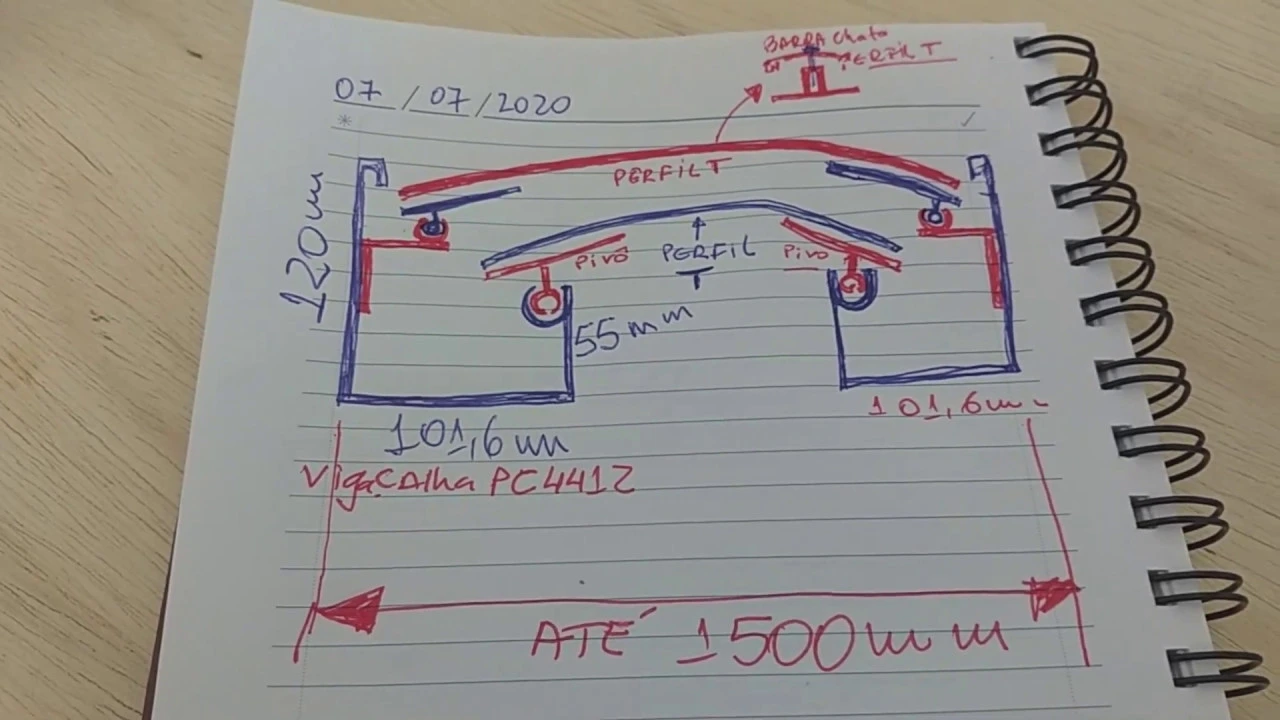 BARRA Chata
PERFIL T
07/07/2020
PERFIL T
120mm
PIVÔ
PERFIL
T
PIVÔ
55mm
101,6mm
101,6mm
Viga CAlha PC4412
ATÉ 1500mm